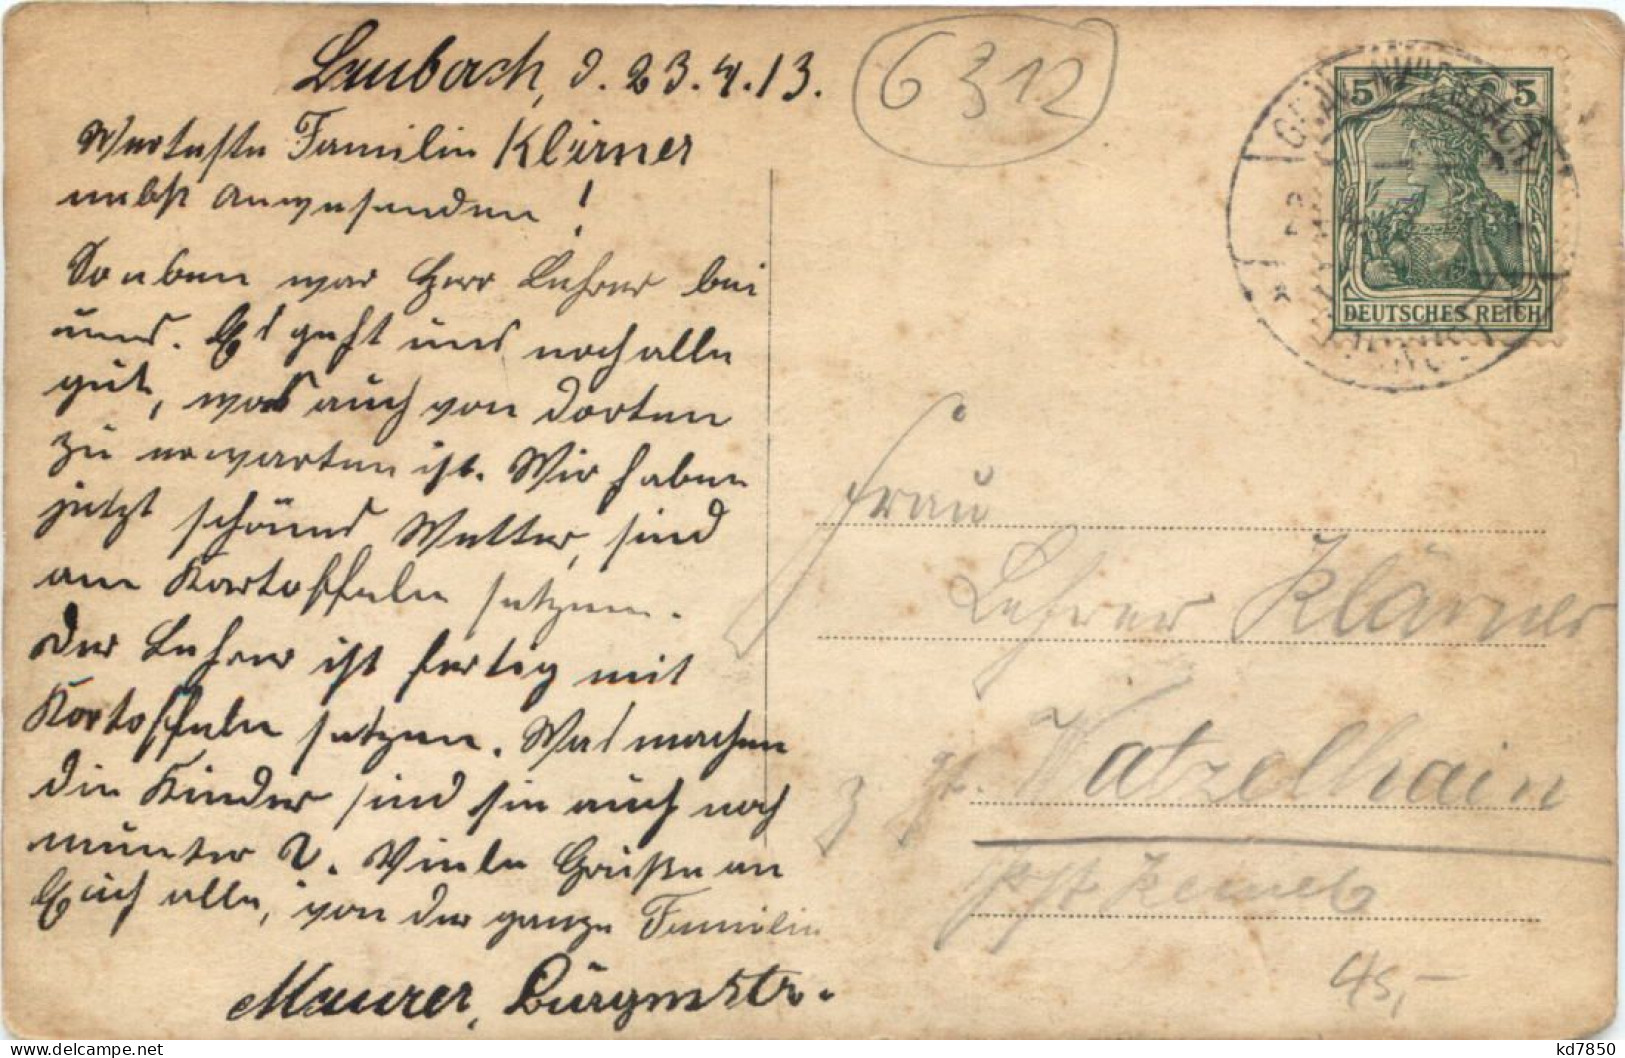 Laubach, d. 23.4.13.
Werteste Familie Klärner
nebst Anwesenden!
Soeben war Herr Lehrer bei
uns. Es geht uns noch alle
gut, was auch von dorten
zu erwarten ist. Wir haben
jetzt schönes Wetter, sind
am Kartoffeln setzen.
Der Lehrer ist fertig mit
Kartoffeln setzen. Was machen
die Kinder sind sie auch noch
munter ?. Viele Grüße an
Euch alle, von der ganze Familie
Maurer, Bürgmstr.
6312
5 5
DEUTSCHES REICH
Frau
Lehrer Klärner
Watzelhain
Post Kemel
45,-
kd7850